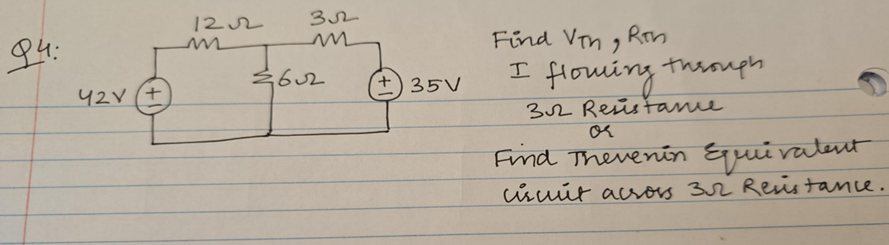 Q4:
12Ω
3Ω
42V
+
-
6Ω
+
-
35V
Find VTh, RTh
I flowing through
3Ω Resistance
or
Find Thevenin Equivalent
circuit across 3Ω Resistance.